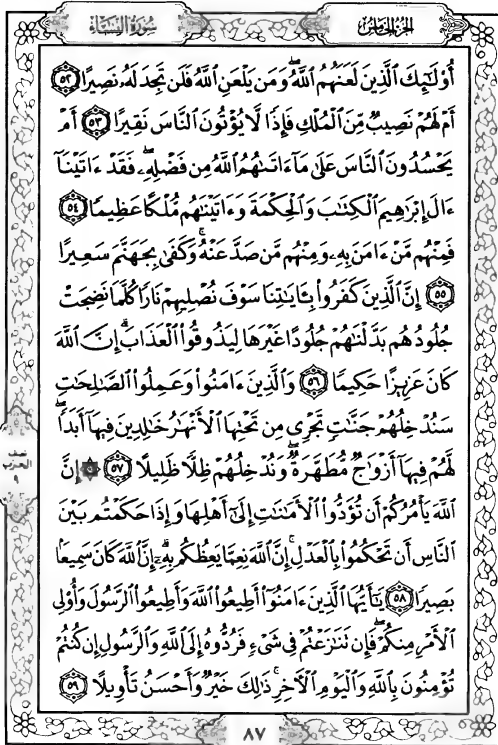 سُورَةُ النِّسَاءِ
الجُزْءُ الخَامِسُ
أُوْلَٰٓئِكَ ٱلَّذِينَ لَعَنَهُمُ ٱللَّهُۖ وَمَن يَلْعَنِ ٱللَّهُ فَلَن تَجِدَ لَهُۥ نَصِيرًا ٥٢
أَمْ لَهُمْ نَصِيبٌ مِّنَ ٱلْمُلْكِ فَإِذًا لَّا يُؤْتُونَ ٱلنَّاسَ نَقِيرًا ٥٣ أَمْ
يَحْسُدُونَ ٱلنَّاسَ عَلَىٰ مَآ ءَاتَىٰهُمُ ٱللَّهُ مِن فَضْلِهِۦۖ فَقَدْ ءَاتَيْنَآ
ءَالَ إِبْرَٰهِيمَ ٱلْكِتَٰبَ وَٱلْحِكْمَةَ وَءَاتَيْنَٰهُم مُّلْكًا عَظِيمًا ٥٤
فَمِنْهُم مَّنْ ءَامَنَ بِهِۦ وَمِنْهُم مَّن صَدَّ عَنْهُۚ وَكَفَىٰ بِجَهَنَّمَ سَعِيرًا
٥٥ إِنَّ ٱلَّذِينَ كَفَرُوا۟ بِـَٔايَٰتِنَا سَوْفَ نُصْلِيهِمْ نَارًا كُلَّمَا نَضِجَتْ
جُلُودُهُم بَدَّلْنَٰهُمْ جُلُودًا غَيْرَهَا لِيَذُوقُوا۟ ٱلْعَذَابَۗ إِنَّ ٱللَّهَ
كَانَ عَزِيزًا حَكِيمًا ٥٦ وَٱلَّذِينَ ءَامَنُوا۟ وَعَمِلُوا۟ ٱلصَّٰلِحَٰتِ
سَنُدْخِلُهُمْ جَنَّٰتٍ تَجْرِى مِن تَحْتِهَا ٱلْأَنْهَٰرُ خَٰلِدِينَ فِيهَآ أَبَدًاۖ
لَّهُمْ فِيهَآ أَزْوَٰجٌ مُّطَهَّرَةٌۖ وَنُدْخِلُهُمْ ظِلًّا ظَلِيلًا ٥٧ ۞ إِنَّ
ٱللَّهَ يَأْمُرُكُمْ أَن تُؤَدُّوا۟ ٱلْأَمَٰنَٰتِ إِلَىٰٓ أَهْلِهَا وَإِذَا حَكَمْتُم بَيْنَ
ٱلنَّاسِ أَن تَحْكُمُوا۟ بِٱلْعَدْلِۚ إِنَّ ٱللَّهَ نِعِمَّا يَعِظُكُم بِهِۦٓۗ إِنَّ ٱللَّهَ كَانَ سَمِيعًۢا
بَصِيرًا ٥٨ يَٰٓأَيُّهَا ٱلَّذِينَ ءَامَنُوٓا۟ أَطِيعُوا۟ ٱللَّهَ وَأَطِيعُوا۟ ٱلرَّسُولَ وَأُو۟لِى
ٱلْأَمْرِ مِنكُمْۖ فَإِن تَنَٰزَعْتُمْ فِى شَىْءٍ فَرُدُّوهُ إِلَى ٱللَّهِ وَٱلرَّسُولِ إِن كُنتُمْ
تُؤْمِنُونَ بِٱللَّهِ وَٱلْيَوْمِ ٱلْءَاخِرِۚ ذَٰلِكَ خَيْرٌ وَأَحْسَنُ تَأْوِيلًا ٥٩
الحزب
٩
٨٧